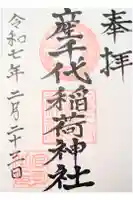 奉拝
産千代稲荷神社
令和七年二月二十三日